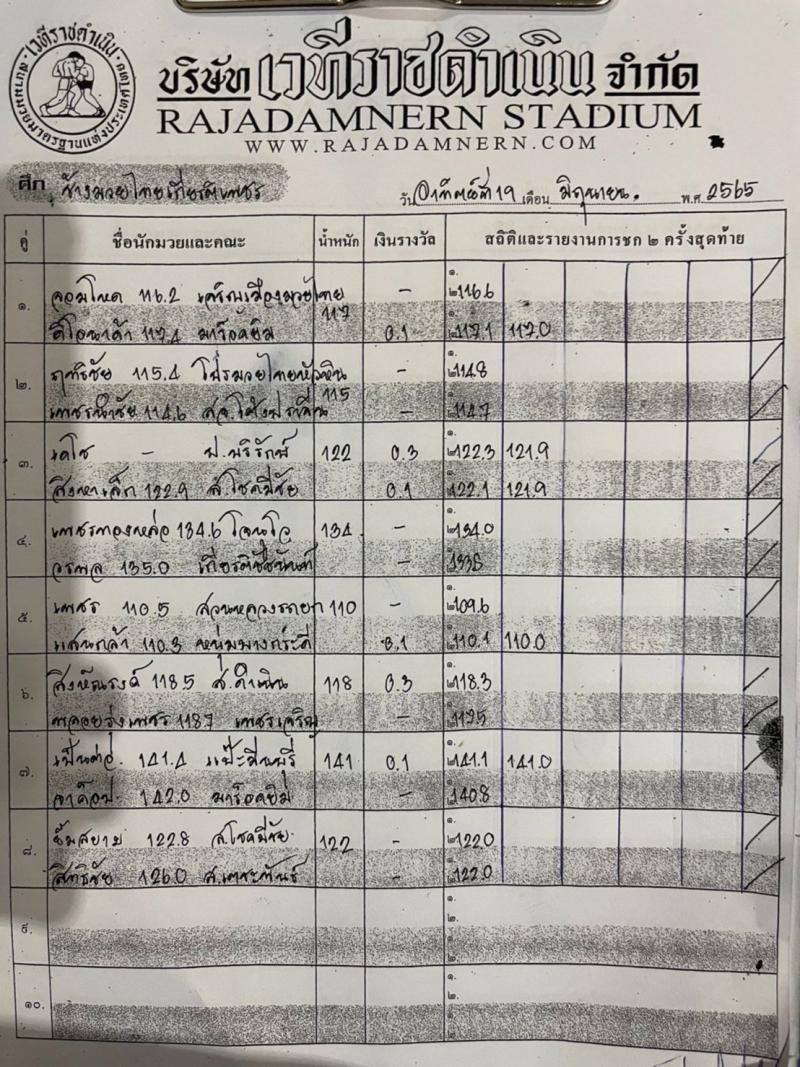 เวทีราชดำเนิน
สนามมวยมาตรฐานแห่งประเทศไทย
บริษัท เวทีราชดำเนิน จำกัด
RAJADAMNERN STADIUM
WWW.RAJADAMNERN.COM
ศึก ช้างมวยไทยเกียรติเพชร วันอาทิตย์ที่ 19 เดือน มิถุนายน. พ.ศ. 2565
คู่ ชื่อนักมวยและคณะ น้ำหนัก เงินรางวัล สถิติและรายงานการชก ๒ ครั้งสุดท้าย
๑. จอมโหด 116.2 เจริญเมืองมวยไทย 117 - ๑. ๒. 116.6
ดีโอนาต้า 117.4 มาร็อคยิม 0.1 117.1 117.0
๒. ฤทธิชัย 115.4 โปรมวยไทยหัวหิน 115 - ๑. ๒. 114.8
เพชรนำชัย 114.6 - 114.7
๓. เคโซ - ป.บริรักษ์ 122 0.3 ๑. ๒. 122.3 121.9
สิงหาเล็ก 122.9 ส.โชคมีชัย 0.1 122.1 121.9
๔. เพชรทองหล่อ 134.6 134 - ๑. ๒. 134.0
วรพล 135.0 เกียรติชัชนันท์ - 133.8
๕. เพชร 110.5 สวนหลวงรถยก 110 - ๑. ๒. 109.6
แสนกล้า 110.3 หนุ่มบางกระดี่ 0.1 110.1 110.0
๖. สิงห์ณรงค์ 118.5 ส.ดำเนิน 118 0.3 ๑. ๒. 118.3
พลอยรุ่งเพชร 118.7 เพชรเจริญ - 117.5
๗. เป็นต่อ. 141.4 แป๊ะมีนบุรี 141 0.1 ๑. ๒. 141.1 141.0
142.0 มาร็อคยิม - 140.8
๘. ยิ้มสยาม 122.8 ส.โชคมีชัย. 122 - ๑. ๒. 122.0
สิทธิชัย 126.0 ส.เดชะพันธ์ - 122.0
๙. ๑. ๒.
๑๐. ๑. ๒.